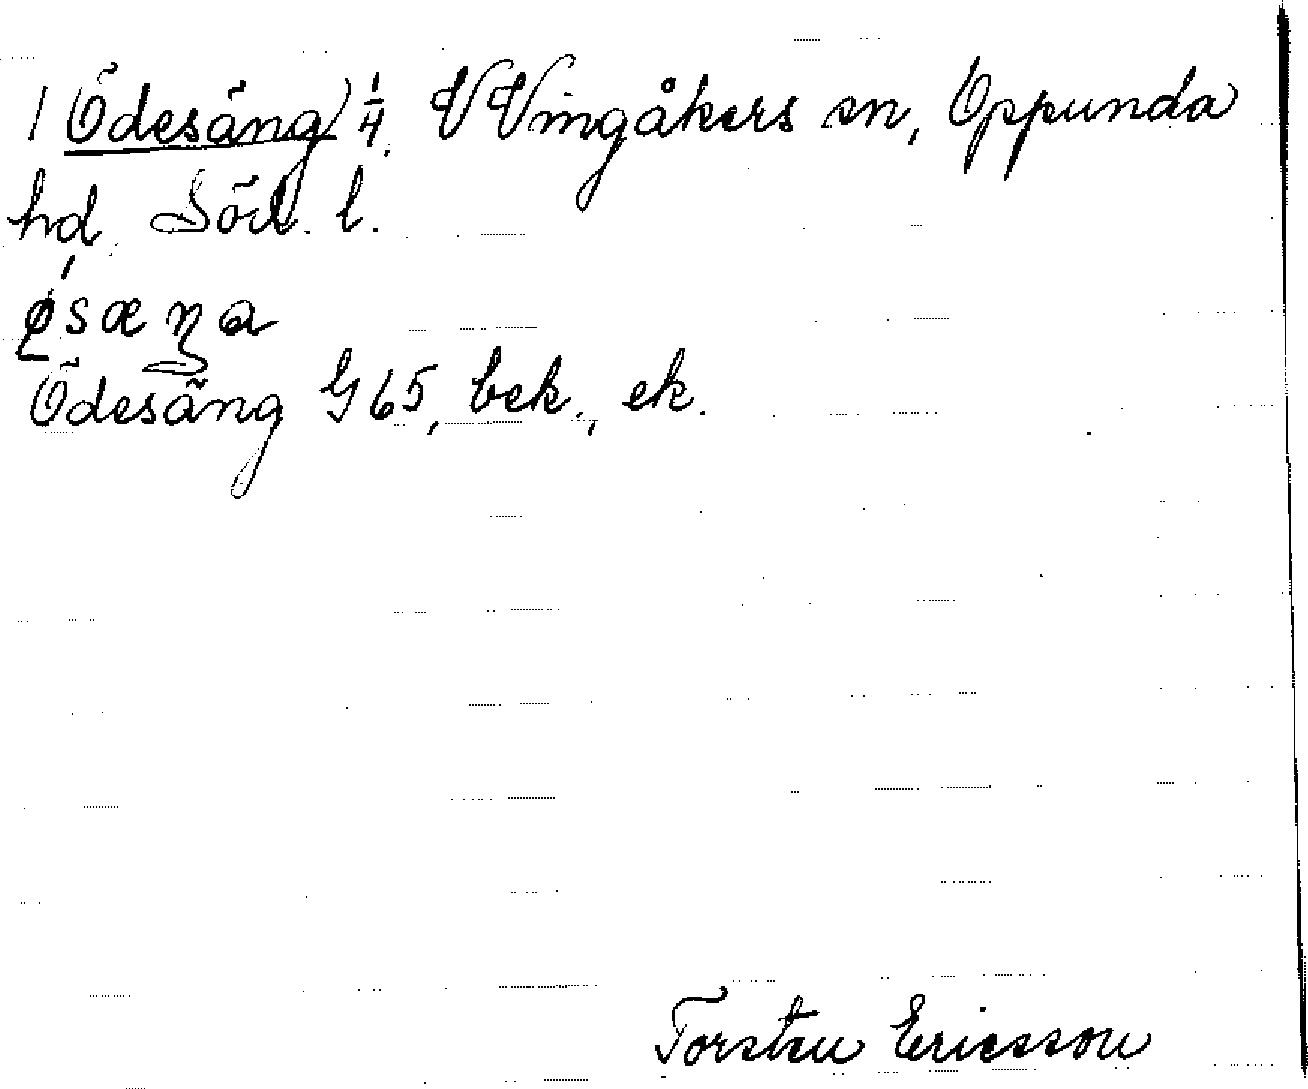 1 Ödesäng 1/4. V Vingåkers sn, Oppunda
hd. Söd. l.
ǿsæŋa
Ödesäng G 65, bek., ek.
Torsten Ericsson